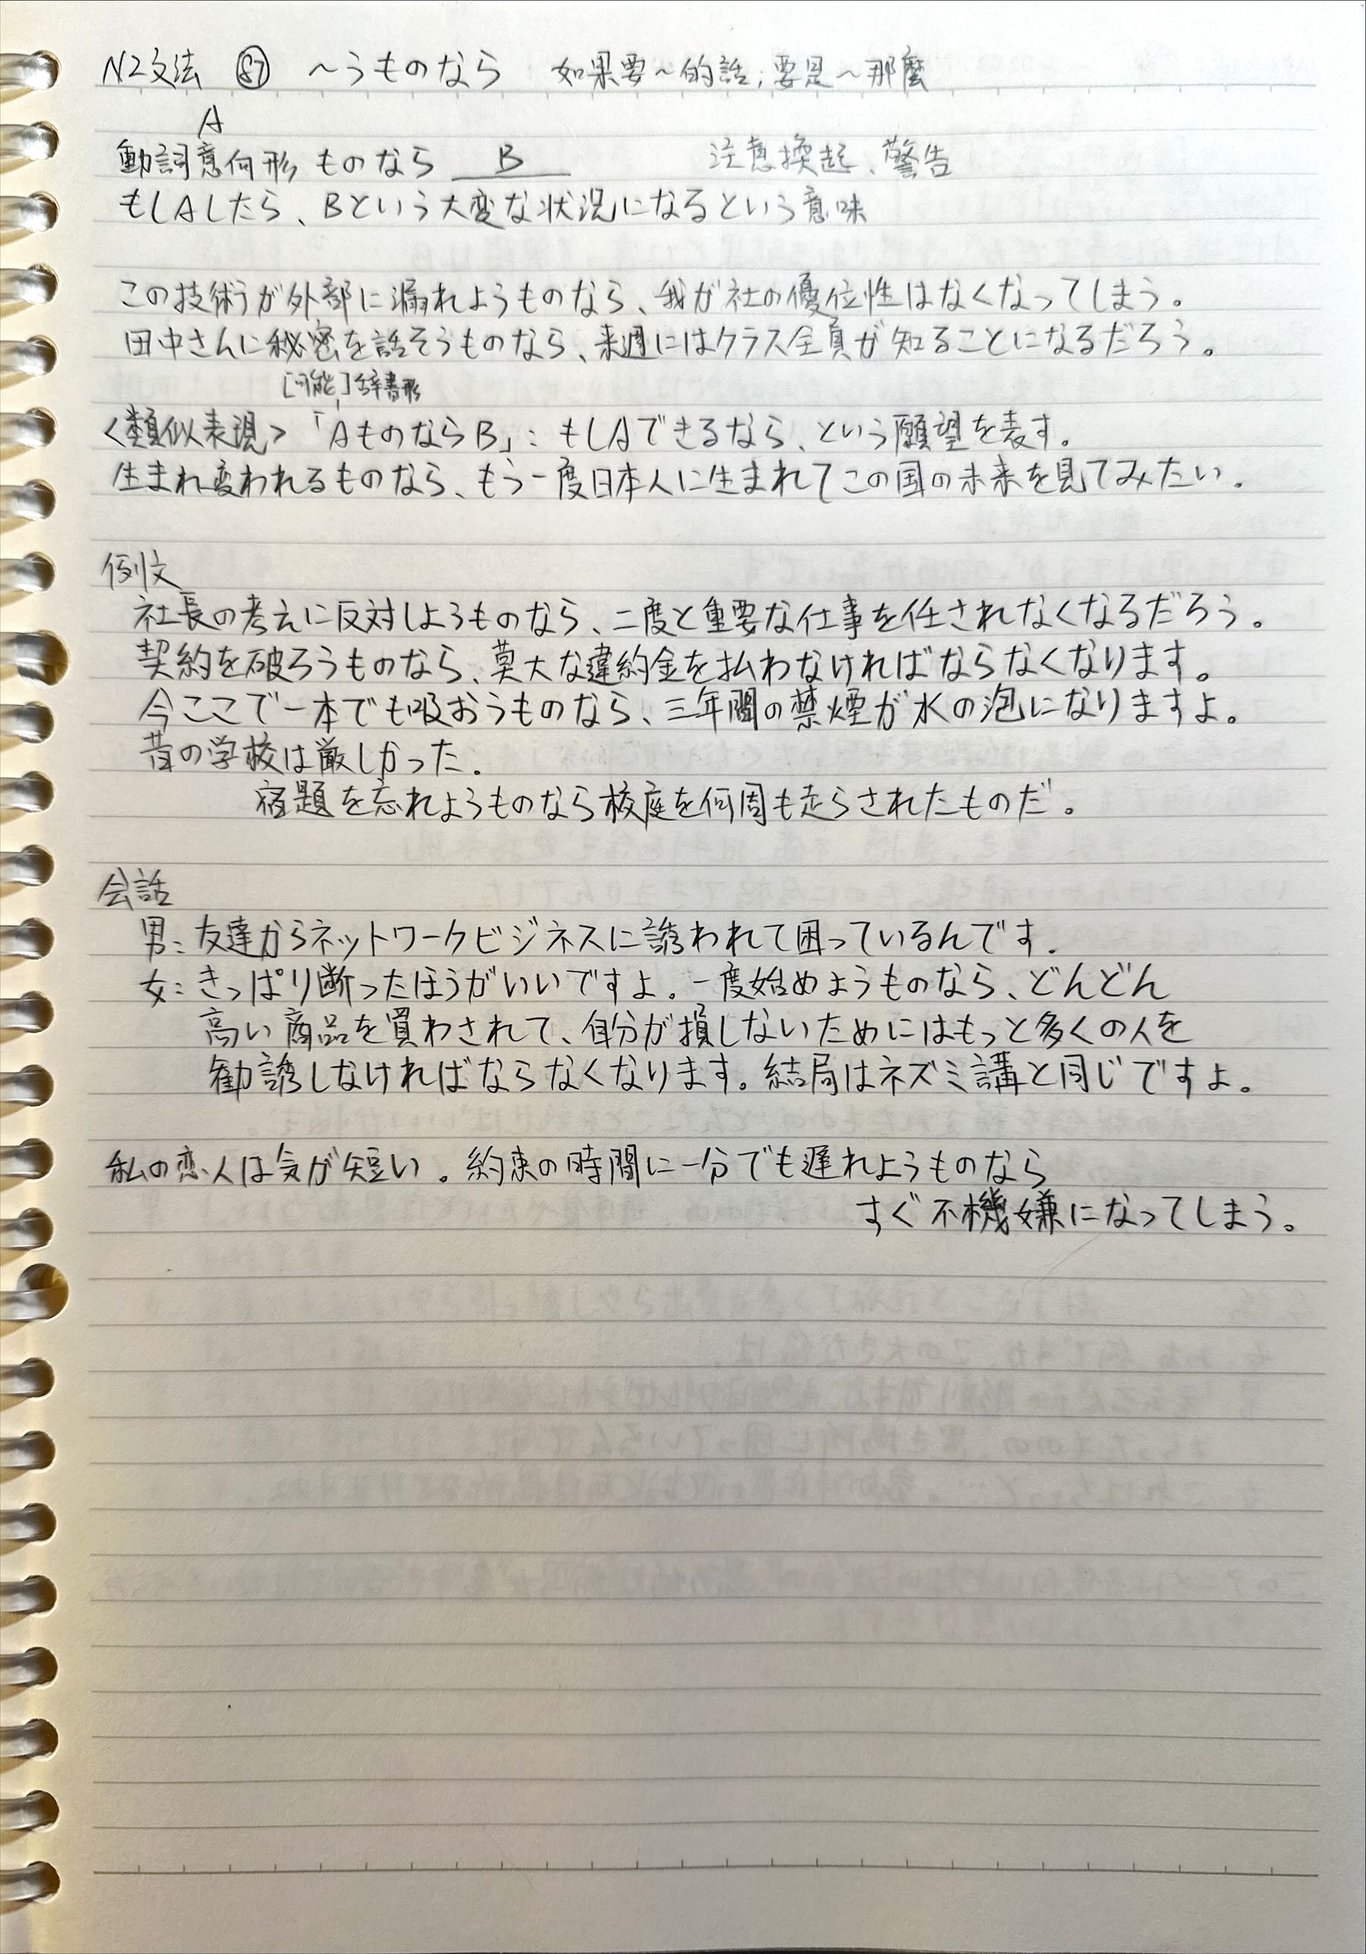 N2文法 ㊼ ～うものなら 如果要～的話；要是～那麼
A
動詞意向形 ものなら B 注意換起、警告
もしAしたら、Bという大変な状況になるという意味
この技術が外部に漏れようものなら、我が社の優位性はなくなってしまう。
田中さんに秘密を話そうものなら、来週にはクラス全員が知ることになるだろう。
[可能]辞書形
<類似表現>「AものならB」：もしAできるなら、という願望を表す。
生まれ変われるものなら、もう一度日本人に生まれてこの国の未来を見てみたい。
例文
社長の考えに反対しようものなら、二度と重要な仕事を任されなくなるだろう。
契約を破ろうものなら、莫大な違約金を払わなければならなくなります。
今ここで一本でも吸おうものなら、三年間の禁煙が水の泡になりますよ。
昔の学校は厳しかった。
宿題を忘れようものなら校庭を何周も走らされたものだ。
会話
男：友達からネットワークビジネスに誘われて困っているんです。
女：きっぱり断ったほうがいいですよ。一度始めようものなら、どんどん
高い商品を買わされて、自分が損しないためにはもっと多くの人を
勧誘しなければならなくなります。結局はネズミ講と同じですよ。
私の恋人は気が短い。約束の時間に一分でも遅れようものなら
すぐ不機嫌になってしまう。